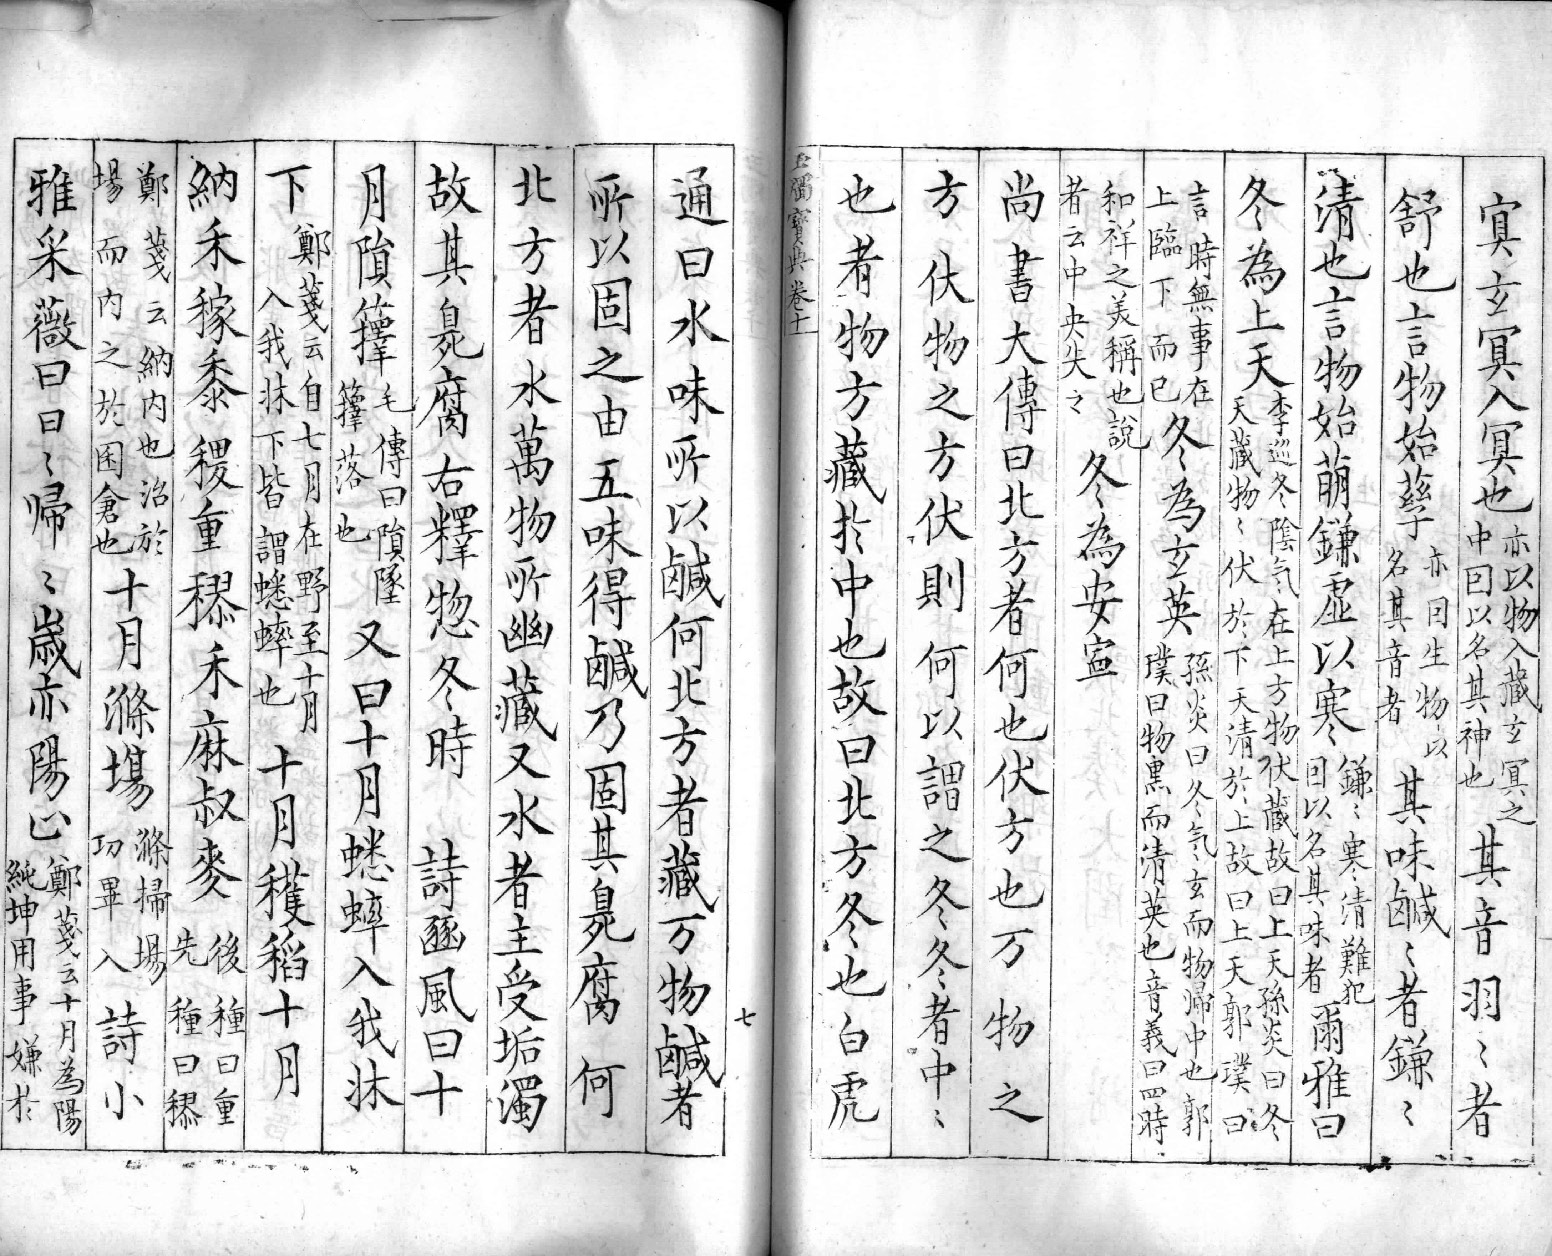 冥玄冥入冥也亦以物入藏玄冥之中因以名其神也其音羽〻者
舒也言物始孳亦因生物以名其音者其味鹹〻者鎌〻
清也言物始萌鎌虛以寒鎌〻寒清難犯因以名其味者爾雅曰
冬為上天李巡冬陰気在上方物伏藏故曰上天孫炎曰冬天藏物〻伏於下天清於上故曰上天郭璞曰
言時無事在上臨下而已冬為玄英孫炎曰冬气玄而物歸中也郭璞曰物黒而清英也音義曰四時
和祥之美稱也說者云中央失之冬為安寍
尚書大傳曰北方者何也伏方也万物之
方伏物之方伏則何以謂之冬冬者中〻
也者物方藏於中也故曰北方冬也白虎
玉燭寶典卷十一
七
通曰水味所以鹹何北方者藏万物鹹者
所以固之由五味得鹹乃固其臭死腐何
北方者水萬物所幽藏又水者主受垢濁
故其臭死腐右釋惣冬時詩豳風曰十
月隕籜毛傳曰隕墜籜落也又曰十月蟋蟀入我牀
下鄭箋云自七月在野至十月入我牀下皆謂蟋蟀也十月穫稻十月
納禾稼黍稷重穋禾麻叔麥後種曰重先種曰穋
鄭箋云納內也治於場而內之於囷倉也十月滌場滌掃場功畢入詩小
雅采薇曰曰〻歸〻歳亦陽止鄭箋云十月為陽純坤用事嫌於